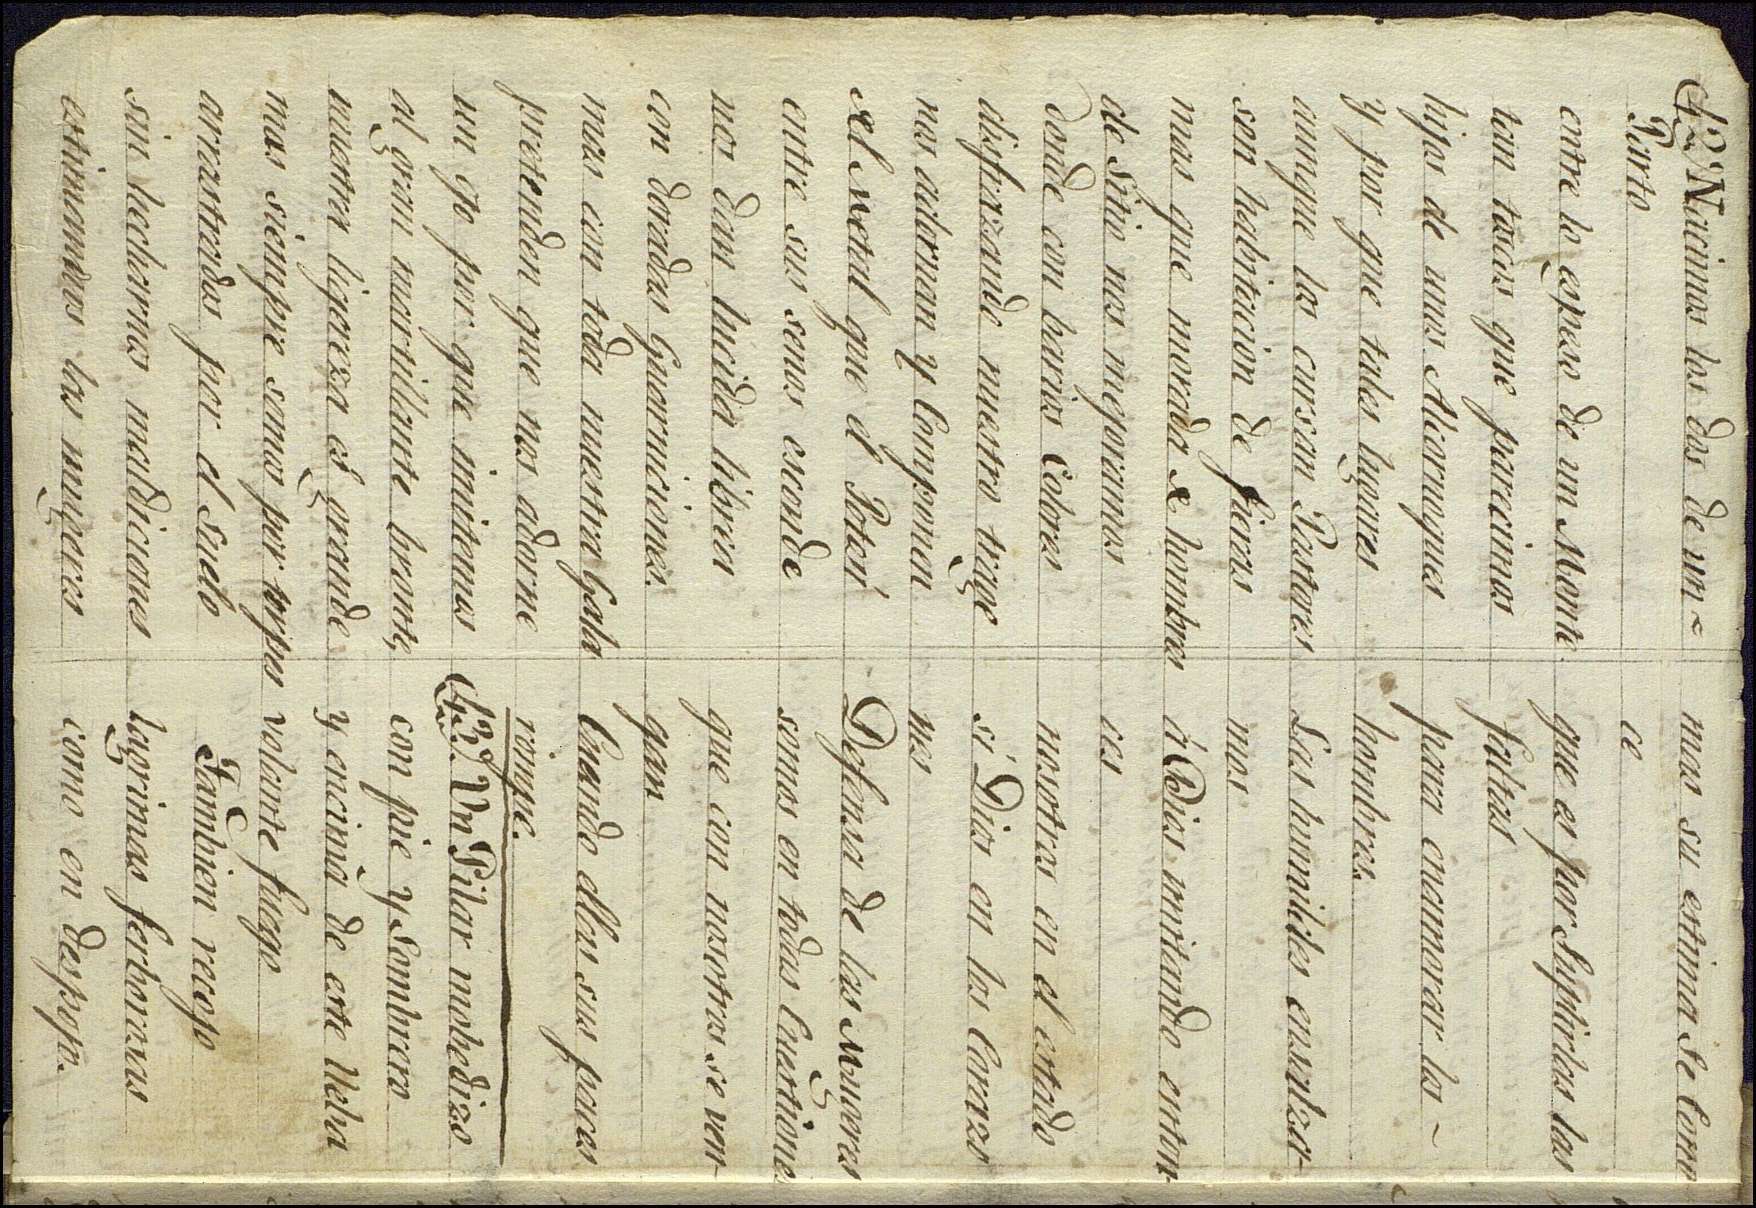 Nacimos los dos de un=
Parto
entre lo espeso de un Monte.
tan toscas que parecimos
hijos de unos Alcornoques
y por que tales lugares
aunque los cursan Pastores
son habitacion de fieras
mas que morada de hombres
de Sitio nos mejoramos
donde con barios Colores
disfrazando nuestro trage
nos adornan y Componen
el metal que el Potosi
entre sus senos esconde
nos dan lucida librea
con doradas Guarniciones.
mas con toda nuestra Gala
pretenden que nos adorne
un ojo por que imitemos
al gran bronte,
nuestra ligereza es grande
mas siempre somos por
arrastrados por el suelo
sin hecharnos maldiciones
estimandos las mugares
mas su estima Se Cono
ce
que es por Suplirlas las
faltas
para enamorar los ~
hombres.
Las humildes ensalza-
mos
á Dios imitando enton
ces
nosotros en el estado
si Dios en los Corazo
nes
Defensa de las Mugeres
somos en todas Questiones
que con nosotros se ven-
gan
Quando ellas sus paces
rompe.
Un Pilar mobedizo
con pie y Sombrero
y encima de este Ueba
volante fuego
Tambien recojo
lagrimas ferborosas
como en despojo.